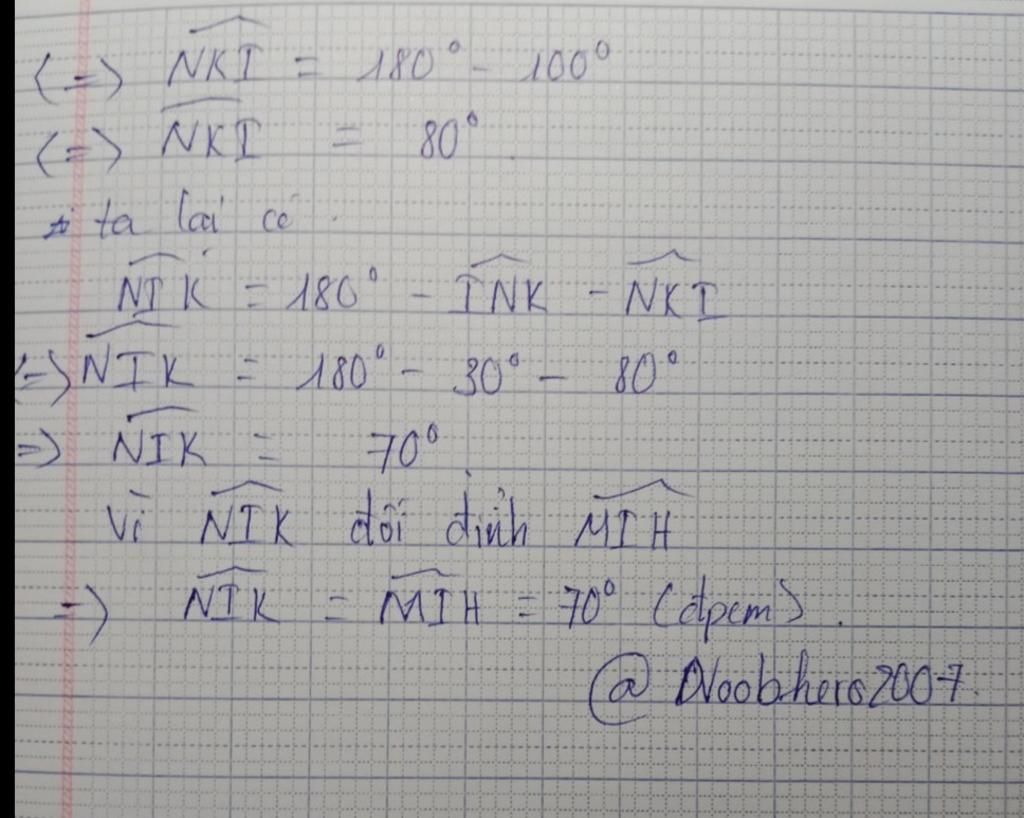 (=) NKI = 180° - 100°
(=) NKI = 80°
ta lại có
NIK = 180° - INK - NKI
(=) NIK = 180° - 30° - 80°
=) NIK = 70°
Vì NIK đối đỉnh MIH
=) NIK = MIH = 70° (đpcm).
@Noobhero2007.